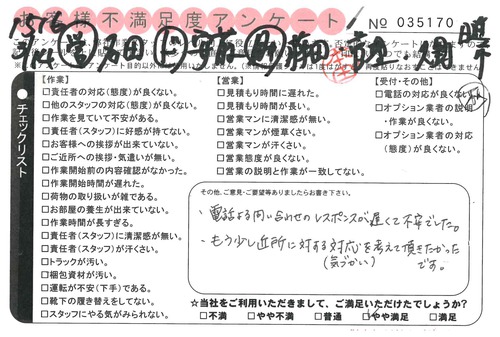 お客様不満足度アンケート
No 035170
チェックリスト
【作業】
□責任者の対応(態度)が良くない。
□他のスタッフの対応(態度)が良くない。
□作業を見ていて不安がある。
□責任者(スタッフ)に好感が持てない。
□お客様への挨拶が出来ていない。
□ご近所への挨拶・気遣いが無い。
□作業開始前の内容確認がなかった。
□作業開始時間が遅れた。
□荷物の取り扱いが雑である。
□お部屋の養生が出来ていない。
□作業時間が長すぎる。
□責任者(スタッフ)に清潔感が無い。
□責任者(スタッフ)が汗くさい。
□トラックが汚い。
□梱包資材が汚い。
□運転が不安(下手)である。
□靴下の履き替えをしてない。
□スタッフにやる気がみられない。
【営業】
□見積もり時間に遅れた。
□見積もり時間が長い。
□営業マンに清潔感が無い。
□営業マンが煙草くさい。
□営業マンが汗くさい。
□営業態度が良くない。
□営業の説明と作業が一致してない。
【受付・その他】
□電話の対応が良くない。
□オプション業者の説明
・作業が良くない。
□オプション業者の対応
(態度)が良くない。
その他、ご意見・ご要望等ありましたらお書き下さい。
・電話よる問い合わせのレスポンスが遅くて不安でした。
・もう少し近所に対する対応を考えて頂きたかった
(気づかい)
です。
☆当社をご利用いただきまして、ご満足いただけたでしょうか?
□不満 □やや不満 □普通 □やや満足 □満足